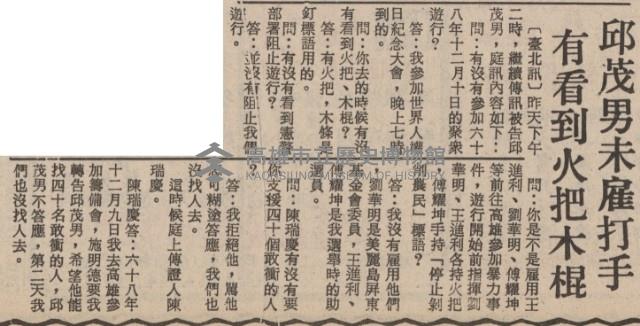 邱茂男未雇打手
有看到火把木棍
〔臺北訊〕昨天下午
二時，繼續傳訊被告邱
茂男，庭訊內容如下：
問：有沒有參加六十
八年十二月十日的聚衆
遊行？
答：我參加世界人權
日紀念大會，晚上七時
到的。
問：你去的時候有沒
有看到火把、木棍？
答：有火把，木條是
釘標語用的。
問：有沒有看到憲警
部署阻止遊行？
答：並沒有阻止我們
遊行。
問：你是不是雇用王
進利、劉華明、傅耀坤
等前往高雄參加暴力事
件，遊行開始前指揮劉
華明、王進利各持火把
，傅耀坤手持「停止剝
削農民」標語？
答：我沒有雇用他們
，劉華明是美麗島屏東
基金會委員，王進利、
傅耀坤是我選舉時的助
選員。
問：陳瑞慶有沒有要
你支援四十個敢衝的人
答：我拒絕他，罵他
不可糊塗答應，我們也
沒找人去。
這時候庭上傳證人陳
瑞慶。
陳瑞慶答：六十八年
十二月九日我去高雄參
加籌備會，施明德要我
轉告邱茂男，希望他能
找四十名敢衝的人，邱
茂男不答應，第二天我
們也沒找人去。
高雄市立歷史博物館
KAOHSIUNG MUSEUM OF HISTORY